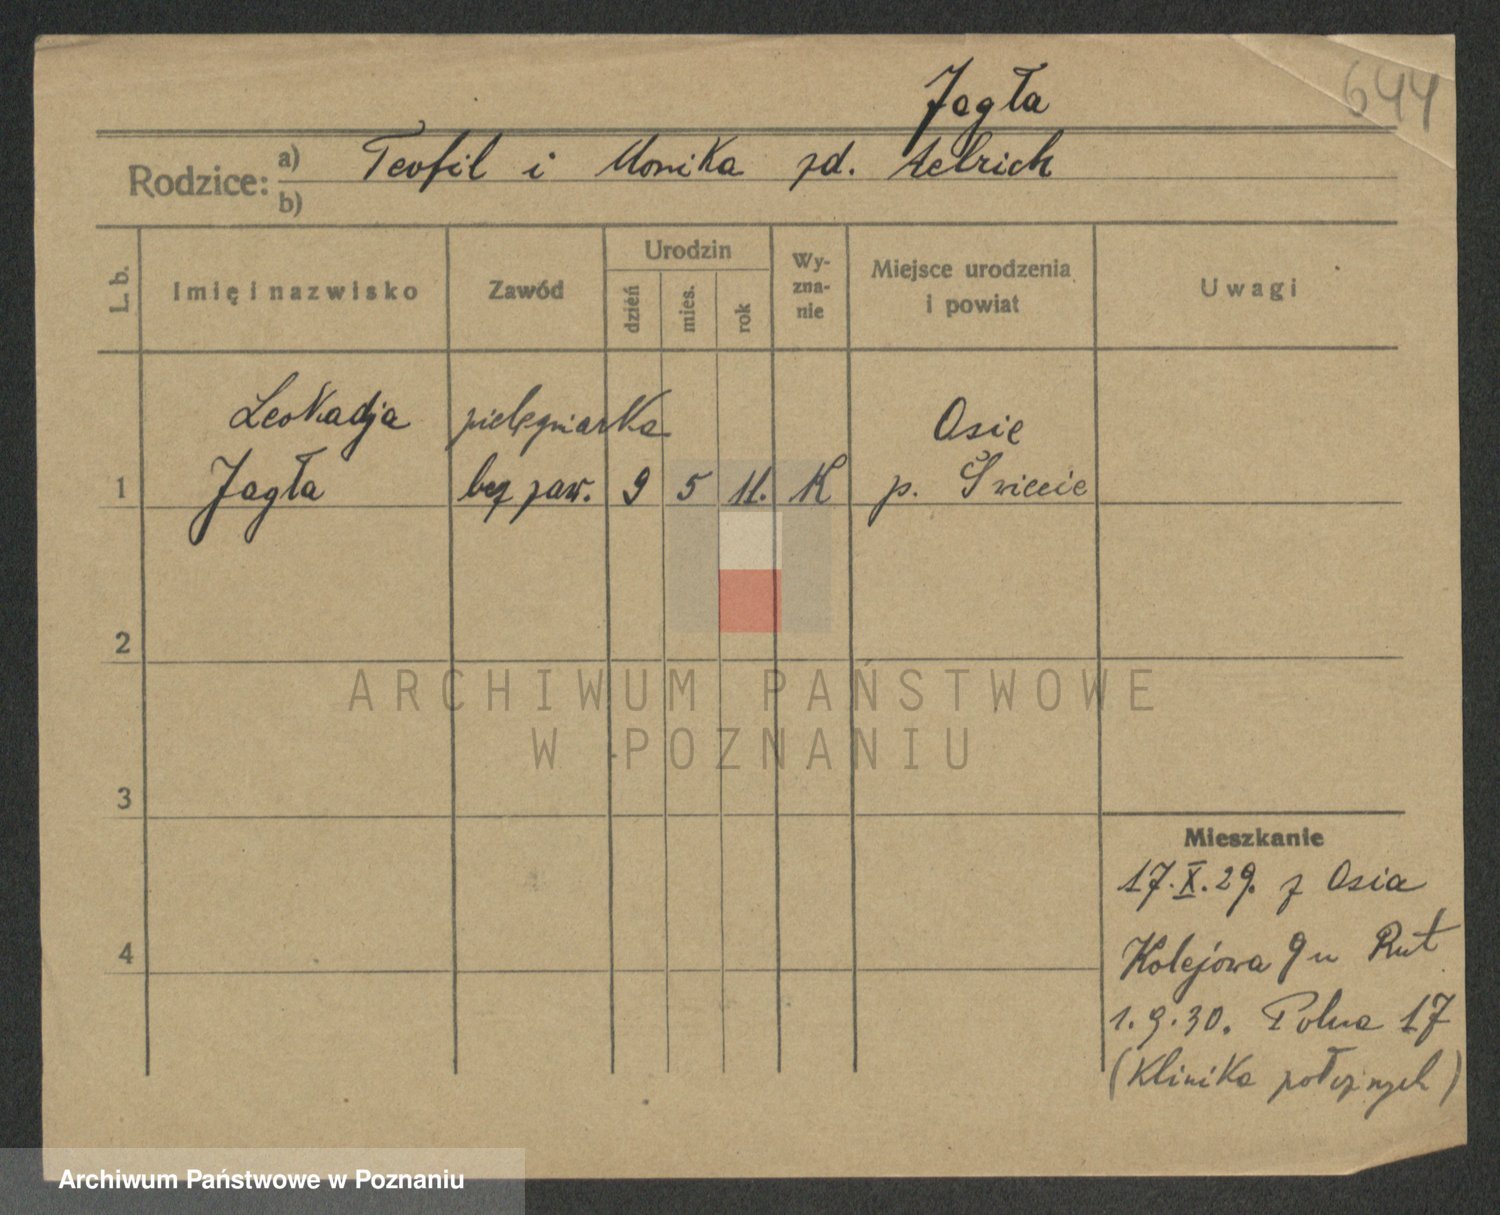 Jagła
644
Rodzice: a) Teofil i Monika zd.
b)
L. b.
Imię i nazwisko
Zawód
Urodzin
dzień
mies.
rok
Wy-
zna-
nie
Miejsce urodzenia
i powiat
Uwagi
Leokadja pielęgniarka Osie
1 Jagła bez zaw. 9 5 11. K p. Świecie
2
3
4
ARCHIWUM PAŃSTWOWE
W POZNANIU
Mieszkanie
17.X.29. z Osia
Kolejowa 9 u Rut
1.9.30. Polna 17
(Klinika położnych)
Archiwum Państwowe w Poznaniu